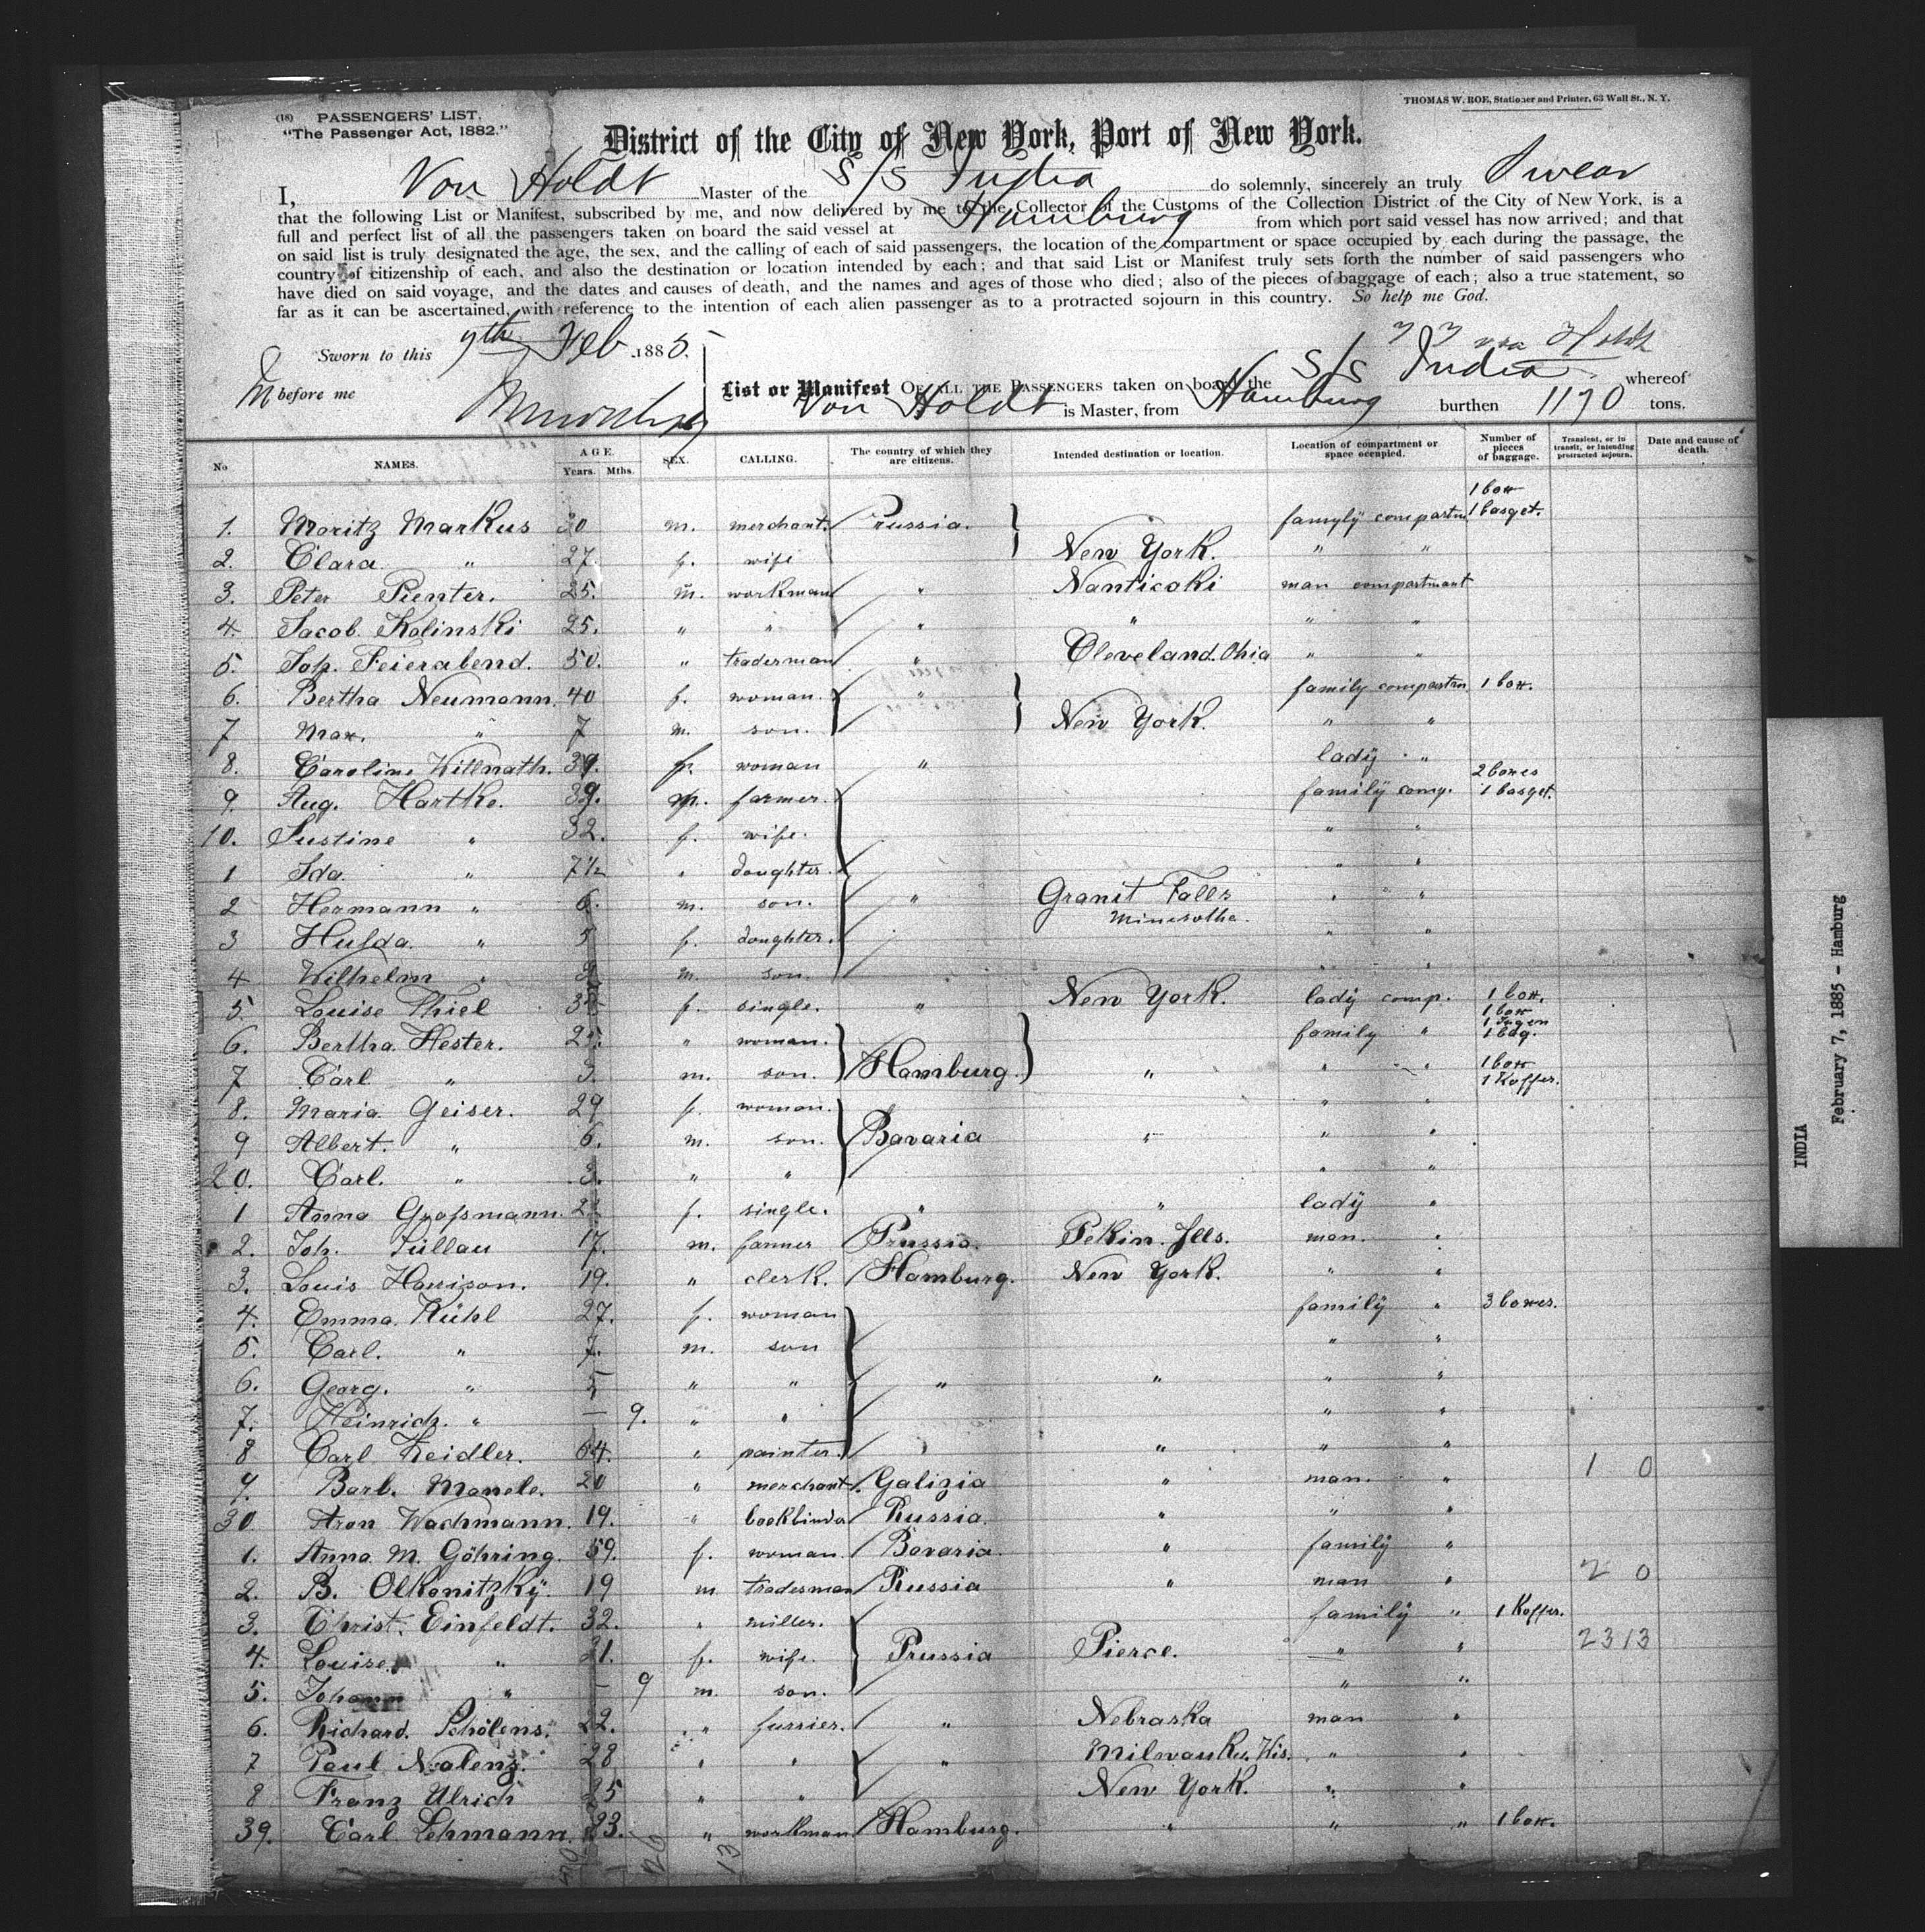 (18) PASSENGERS' LIST.
"The Passenger Act, 1882."
THOMAS W. ROE, Stationer and Printer, 63 Wall St., N. Y.
District of the City of New York, Port of New York.
I, Von Holdt Master of the S/S India do solemnly, sincerely an truly Swear
that the following List or Manifest, subscribed by me, and now delivered by me to the Collector of the Customs of the Collection District of the City of New York, is a
full and perfect list of all the passengers taken on board the said vessel at Hamburg from which port said vessel has now arrived; and that
on said list is truly designated the age, the sex, and the calling of each of said passengers, the location of the compartment or space occupied by each during the passage, the
country of citizenship of each, and also the destination or location intended by each; and that said List or Manifest truly sets forth the number of said passengers who
have died on said voyage, and the dates and causes of death, and the names and ages of those who died; also of the pieces of baggage of each; also a true statement, so
far as it can be ascertained, with reference to the intention of each alien passenger as to a protracted sojourn in this country. So help me God.
Sworn to this 7th Feb 1885.
before me
List or Manifest OF ALL THE PASSENGERS taken on board the S/S India whereof
Von Holdt is Master, from Hamburg burthen 1170 tons.
No NAMES. AGE. Years. Mths. SEX. CALLING. The country of which they are citizens. Intended destination or location. Location of compartment or space occupied. Number of pieces of baggage. Transient, or in transit, or intending protracted sojourn. Date and cause of death.
1 box
1. Moritz Markus 30 m. merchant. Prussia. famyly compartm. 1 basget.
2. Clara " 27. f. wife New York. " "
3. Peter Pienter. 25. m. workman " Nanticoki man compartmant
4. Jacob Kolinski 25. " " " " " "
5. Joh. Feierabend. 50. " traderman " Cleveland. Ohio " "
6. Bertha Neumann. 40 f. woman. " family compartm 1 box.
7 Max. " 7 m. son. New York. " "
8. Caroline Willnath. 39. f. woman " lady "
2 boxes
9. Aug. Hartke. 39. m. farmer. family comp. 1 basget.
10. Justine " 32. f. wife. " "
1 Ida " 7½ " doughter. " "
2 Hermann " 6. m. son. " Granit Falls " "
Minesotha.
3 Hulda. " 5 f. doughter. " "
4 Wilhelm " m. son. " "
5. Louise Thiel f. single. " New York. lady comp. 1 box.
1 box
6. Bertha Hester. 25. " woman. family " 1 bag.
7 Carl " 3. m. son. Hamburg. " " " 1 box
1 Koffer.
8. Maria Geiser. 29 f. woman. " "
9 Albert. " 6. m. son. Bavaria " " "
20. Carl. " 3. " " " "
1 Anna Großmann. f. single. " " lady "
2. Joh. Tüllau 17. m. farmer Prussia. Pekin. Jlls. man. "
3. Louis Harrison. 19. " clerk. Hamburg. New York. " "
4. Emma. Kühl 27. f. woman family " 3 boxes.
5. Carl. " 7. m. son " "
6. Georg. " 5 " " " " " "
7. Heinrich. " — 9. " " " "
8 Carl Keidler. 64. " painter. " " "
9. Barb. Manele. 20 " merchant. Galizia " man. " 1 0
30 Aron Wachmann. 19. " bookbinder Russia. " " "
1. Anna M. Göhring. 59. f. woman. Bavaria. " family "
2. B. Olkonitzky. 19 m tradesman Russia " man " 2 0
3. Christ. Einfeldt. 32. " miller. family " 1 Koffer.
4. Louise. " 21. f. wife. Prussia Pierce. " " 2313
5. Johann " — 9 m. son. " "
6. Richard. Schölens. 22. " furrier. " Nebraska man "
7 Paul Nalenz. 28 " " " Milwauky. Wis. " "
8 Franz Ulrich 25 " " New York. " "
39. Carl Lehmann. 23. " workman Hamburg. " " " 1 box.
INDIA
February 7, 1885 - Hamburg